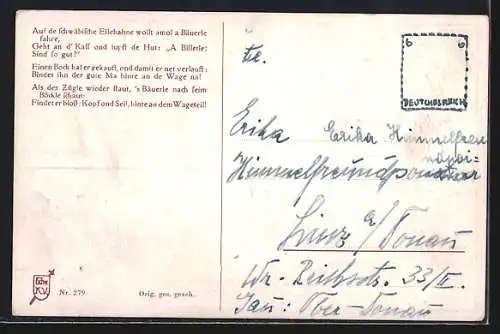 Auf de schwäbische Eisebahne wollt amol a Bäuerle
fahre,
Geht an d' Kass' ond lupft de Hut: „A Billetle:
Sind so gut!"
Einen Bock hat er gekauft, ond damit er net verlauft:
Bindet ihn der gute Ma hinte an de Wage na!
Als des Zügle wieder staut, 's Bäuerle nach seim
Böckle schaut:
Findet er bloß: Kopf ond Seil, hinte an dem Wageteil!
Nr. 279
Orig. ges. gesch.
6 6
DEUTCHESREICH
Erika
Erika Himmelfreu
Himmelfreundpointner
Linz a/Donau
33/II.
Gau: Ober-Donau